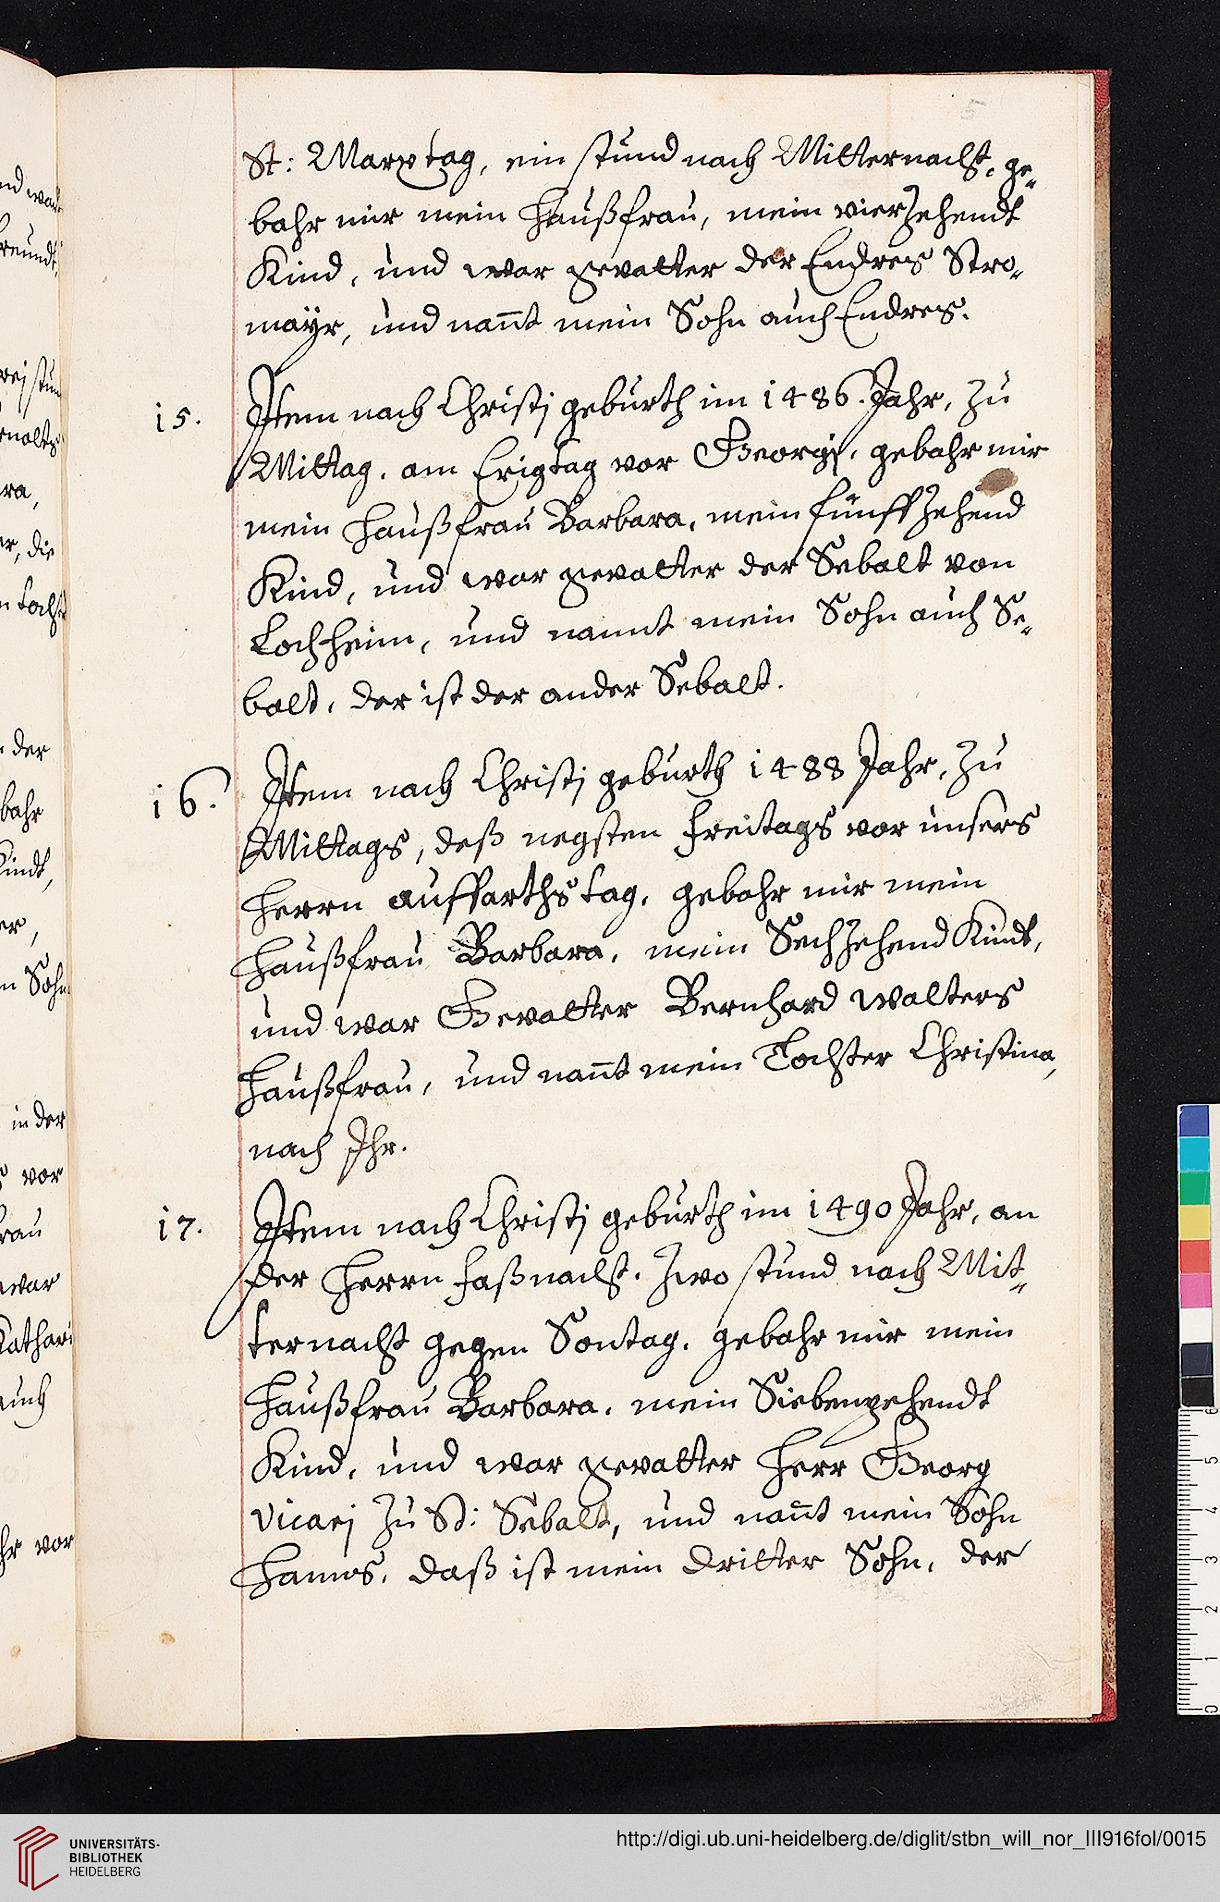 5
St: Marx tag, ein stund nach Mitternacht, ge-
bahr mir mein Haußfrau, mein vierzehendt
Kind, und war gevatter der Endres Stro-
mayr, und nant mein Sohn auch Endres.
15. Item nach Christj geburth im 1486. Jahr, Zu
Mittag, am Erigtag vor Georgj, gebahr mir
mein Haußfrau Barbara, mein fünffzehend
Kind, und war gevatter der Sebalt von
Lochheim, und nannt mein Sohn auch Se-
balt, der ist der ander Sebalt.
16. Item nach Christj geburth 1488 Jahr, Zu
Mittags, deß negsten Freitags vor unsers
Herrn auffarths tag, gebahr mir mein
Haußfrau Barbara, mein Sechzehend Kindt,
und war Gevatter Bernhard Walters
Haußfrau, und nant mein Tochter Christina,
nach Ihr.
17. Item nach Christj geburth im 1490 Jahr, an
der Herrn Faßnacht, Zwo stund nach Mit-
ternacht gegen Sontag, gebahr mir mein
Haußfrau Barbara, mein Siebenzehendt
Kind, und war gevatter Herr Georg
Vicarj Zu St: Sebalt, und nant mein Sohn
Hanns, daß ist mein dritter Sohn, der
UNIVERSITÄTS-
BIBLIOTHEK
HEIDELBERG
http://digi.ub.uni-heidelberg.de/diglit/stbn_will_nor_III916fol/0015